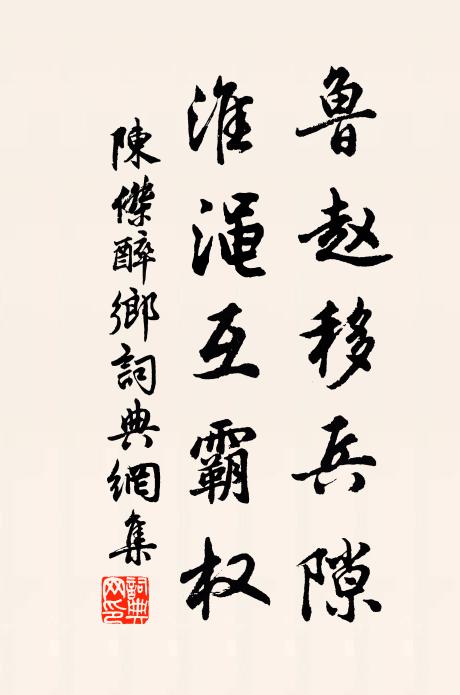 鲁赵移兵隙
淮渑互霸权
陳傑醉鄉詞典網集
詞典网印